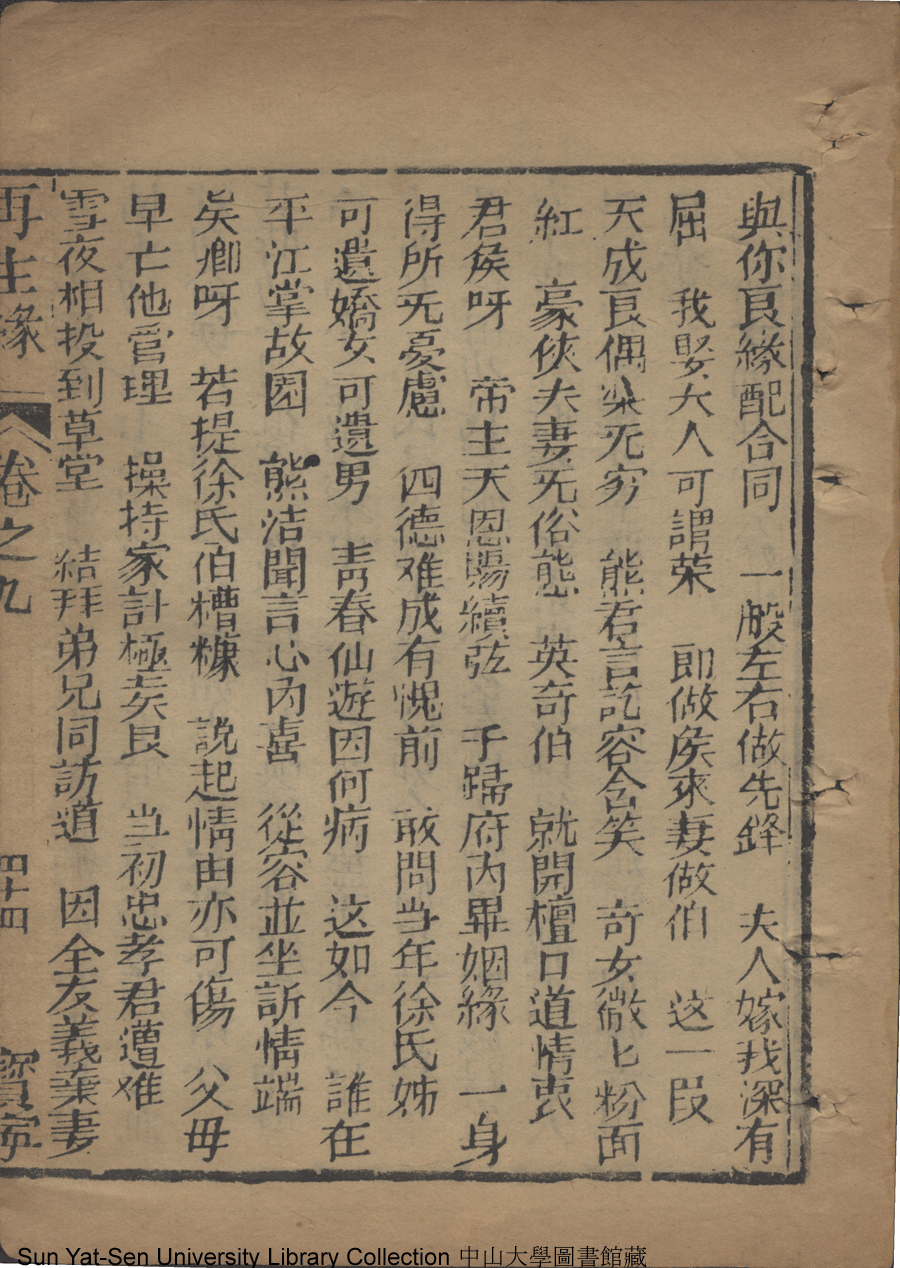 與你良緣配合同　一般左右做先鋒　夫人嫁我深有
屈　我娶夫人可謂荣　即做侯來妻做伯　这一段
天成良偶樂无穷　熊君言訖容含笑　奇女微匕粉面
紅　豪俠夫妻无俗態　英奇伯　就開檀口道情衷
君侯呀　帝主天恩賜續弦　于歸府内畢姻緣　一身
得所无憂慮　四德难成有愧前　敢問当年徐氏姊
可遺嬌女可遺男　青春仙遊因何病　这如今　誰在
平江掌故园　熊浩聞言心内喜　從容並坐訴情端
矣卿呀　若提徐氏伯糟糠　説起情由亦可傷　父毋
早亡他管理　操持家計極矣艮　当初忠孝君遭难
雪夜相投到草堂　結拜弟兄同訪道　因全友義棄妻
再生緣　卷之九　四十四　寳寧
Sun Yat-Sen University Library Collection 中山大學圖書館藏